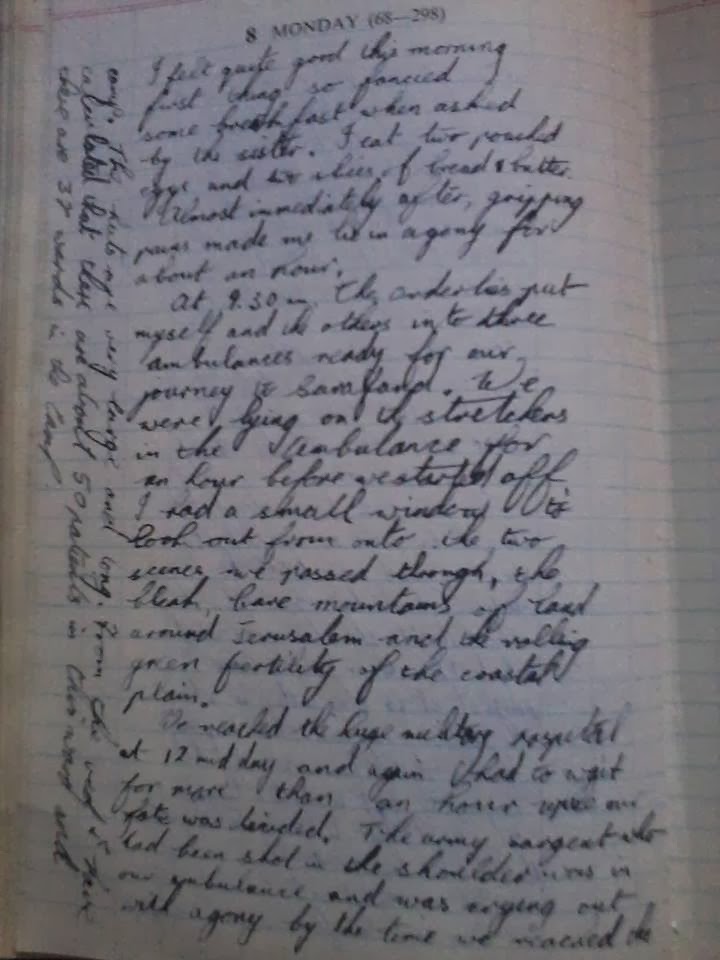 8 MONDAY (68—298)
I felt quite good this morning
first thing so fancied
some breakfast when asked
by the sister. I eat two poached
eggs and two slices of bread & butter.
Almost immediately after, gripping
pains made me lie in agony for
about an hour.
At 9.30 The orderlies put
myself and the others into three
ambulances ready for our
journey to Sarafand. We
were lying on the stretchers
in the ambulance for
an hour before we started off
I had a small window to
look out from onto the two
scenes we passed through, the
bleak, bare mountains of land
around Jerusalem and the rolling
green fertility of the coastal
plain.
We reached the huge military hospital
at 12 midday and again I had to wait
for more than an hour our
fate was decided. The army sargent who
had been shot in the shoulder was in
our ambulance and was crying out
with agony by the time we reached the
camp. The huts are very large and long. From the
calculated that there are about 50 patients in this ward and
there are 37 wards in the Camp